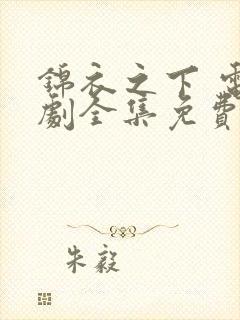 錦衣之下 電
劇全集免費
朱毅